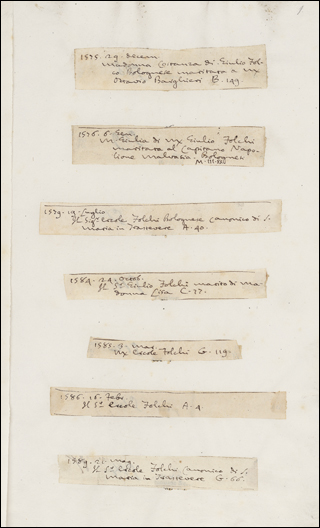 1
1575. 29. decem.
Madonna Costanza di Giulio Fol-
co. Bolognese maritata a mr
Ottavio Barghieri B. 149
1576. 6. Gen.
M. Giulia di mr Giulio Folchi
maritata al Capitano Napo-
lione malvasia. Bolognesi
M-III-XII
1579. 19. luglio.
Il Sr. Ercole Folchi Bolognese canonico di S.
Maria in Transevere A. 40.
1584. 29. ottob.
Il Sr Giulio Folchi marito di ma-
donna Livia C. 77.
1585. 9. mag.
mr Ercole Folchi G. 119.
1586. 16. Febr.
Il Sr Ercole Folchi A. 4.
1589. mag.
Il Sr Ercole Folchi Canonico di S.
Maria in Transevere G. 66.